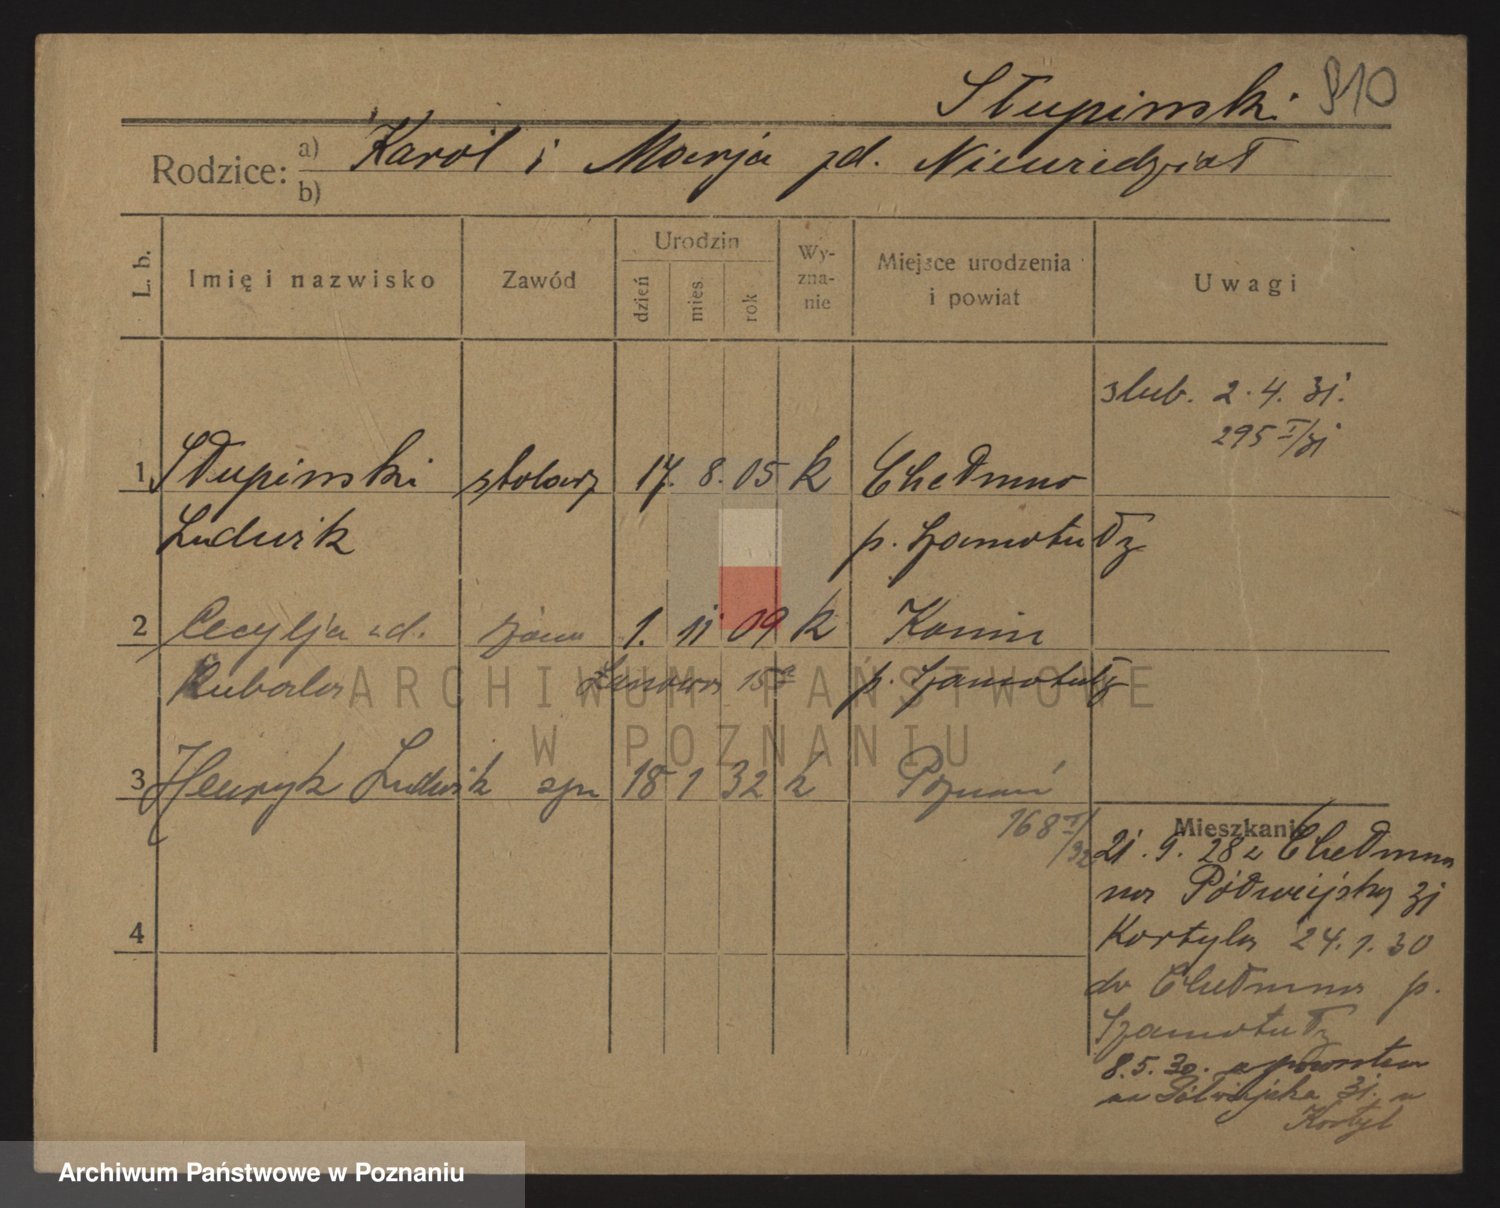 Słupinski 910
Rodzice: a) Karól i Marja zd. Niewiedział
b)
L. b. Imię i nazwisko Zawód Urodzin dzień mies. rok Wy-zna-nie Miejsce urodzenia i powiat Uwagi
slub. 2.4.31.
295 I/31
1 Słupinski stolarz 17. 8. 05 k Chełmno
Ludwik p. Szamotuły
2 Cecylja zd. żona 1. 11 09 k Kamin
Rubala p. Szamotuły
ARCHIWUM PAŃSTWOWE
W POZNANIU
3 Henryk Ludwik syn 18 1 32 k Poznań
168 I/32
Mieszkanie
21.9.28 z Chełmna
na Półwiejską 31
Kortyla 24.1.30
do Chełmna p.
Szamotuły
8.5.30. z powrotem
na Półwiejska 31. u
Kortyl
4
Archiwum Państwowe w Poznaniu